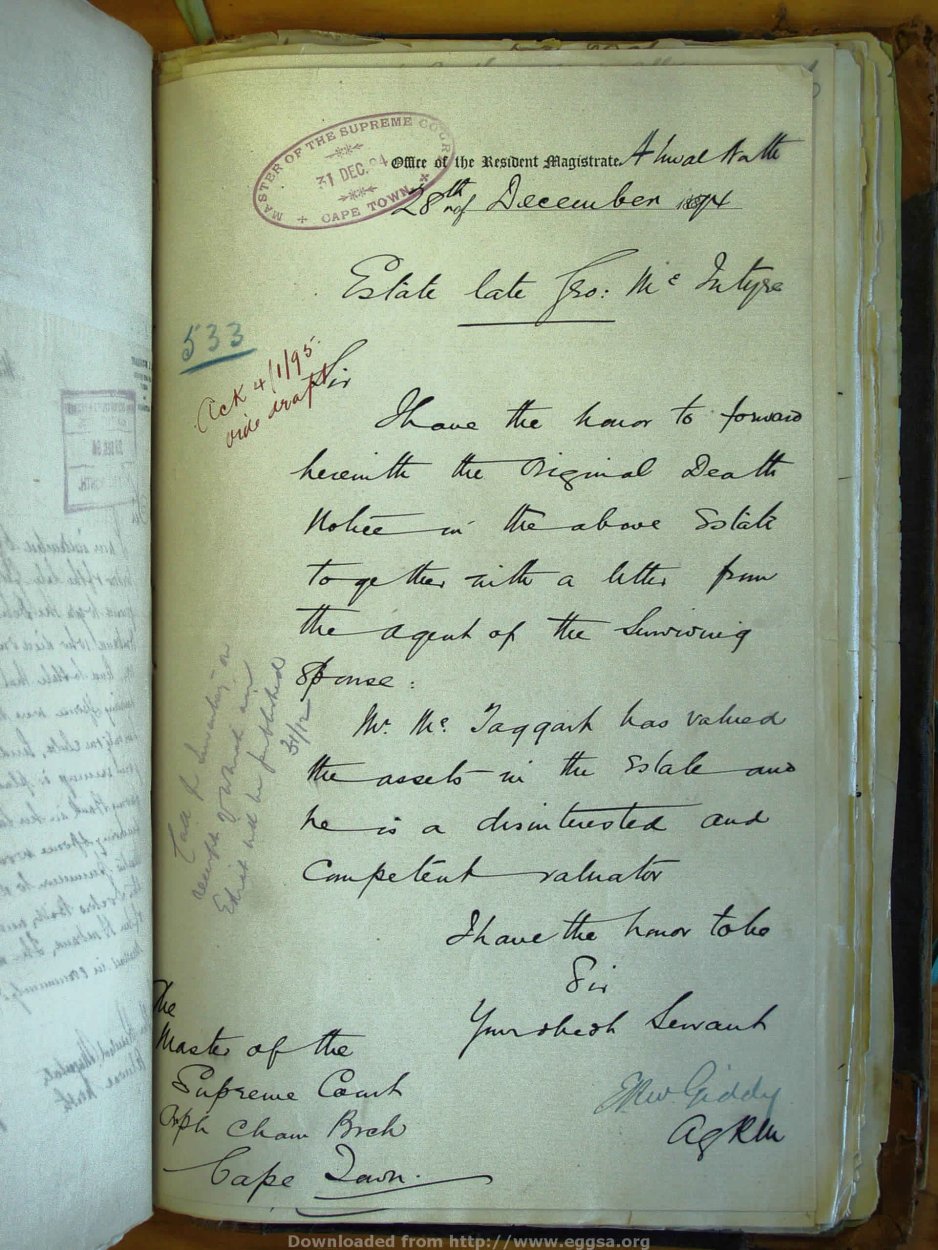 MASTER OF THE SUPREME COURT
31 DEC. 94
CAPE TOWN
Office of the Resident Magistrate, Aliwal North
28th of December 1894
Estate late Geo: Mc Intyre
533
Ack 4/1/95
vide draft
Sir
I have the honor to forward
herewith the Original Death
Notice in the above Estate
together with a letter from
the agent of the Surviving
Spouse:
Mr. Mc Taggart has valued
the assets in the Estate and
he is a disinterested and
Competent valuator
I have the honor to be
Sir
Your obedt Servant
Giddy
Ag RM
Edict will be published
31/12
The
Master of the
Supreme Court
Orph Cham Brch
Cape Town.
Downloaded from http://www.eggsa.org